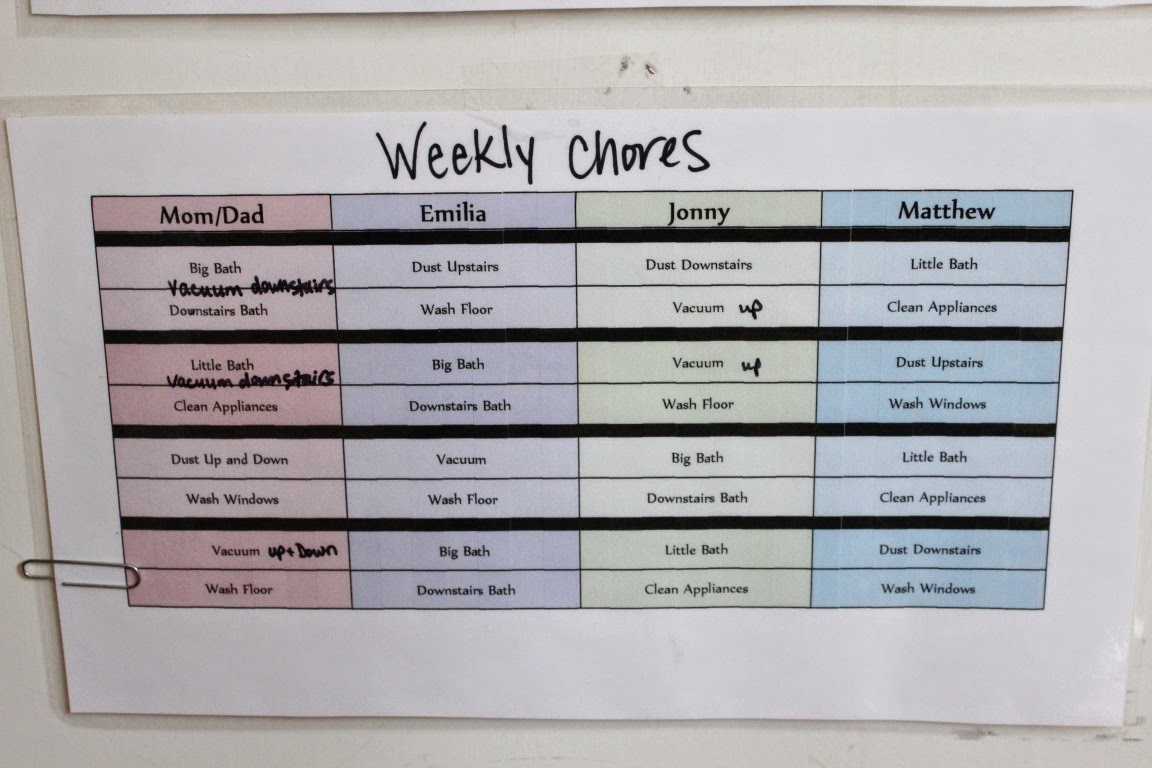 Weekly Chores
Mom/Dad Emilia Jonny Matthew
Big Bath Dust Upstairs Dust Downstairs Little Bath
Vacuum downstairs
Downstairs Bath Wash Floor Vacuum up Clean Appliances
Little Bath Big Bath Vacuum up Dust Upstairs
Vacuum downstairs
Clean Appliances Downstairs Bath Wash Floor Wash Windows
Dust Up and Down Vacuum Big Bath Little Bath
Wash Windows Wash Floor Downstairs Bath Clean Appliances
Vacuum up + Down Big Bath Little Bath Dust Downstairs
Wash Floor Downstairs Bath Clean Appliances Wash Windows